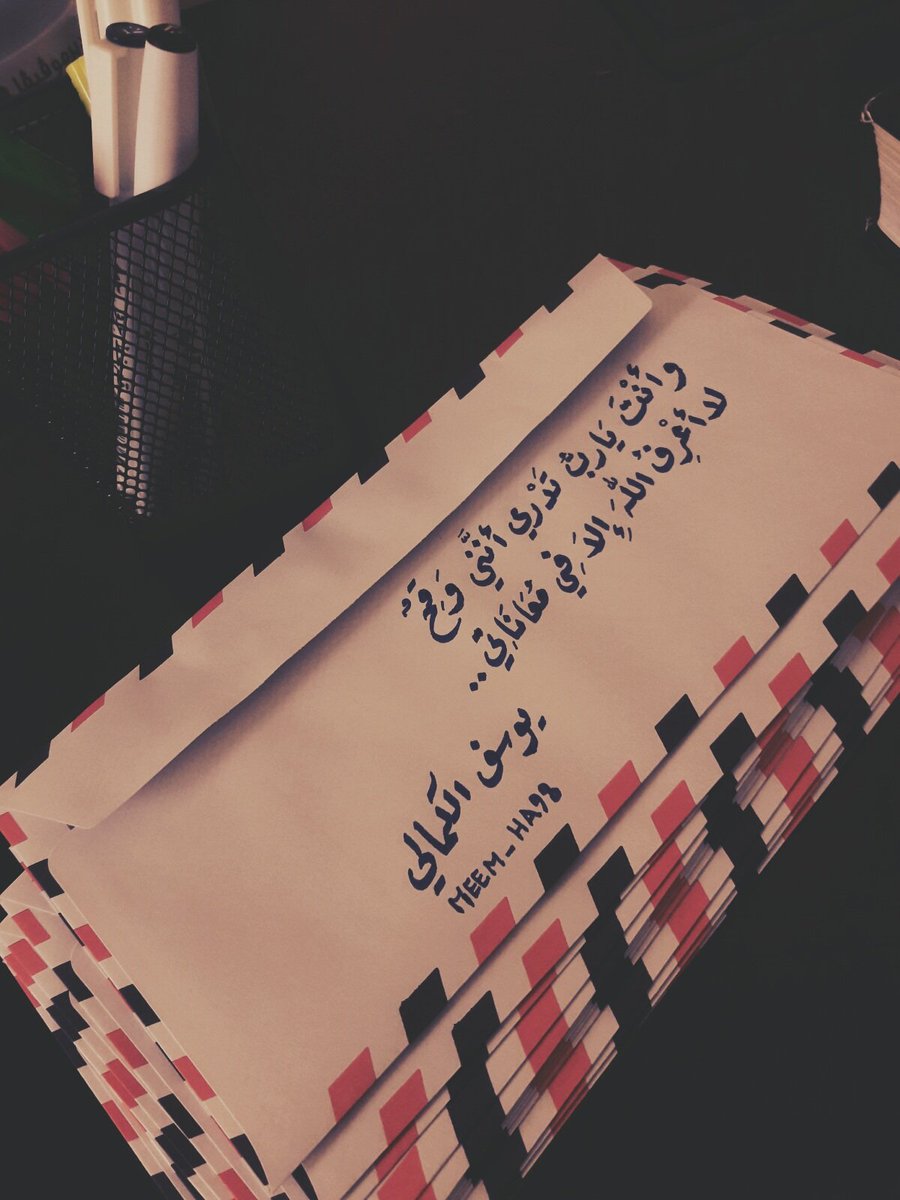 وأَنْتَ يَا ربُّ تَدْرِي أَنَّنِي وَقِحٌ
لا أَعْرِفُ اللَّهَ إِلاَّ فِي مُعَانَاتِي..
يوسف الكمالي
MEEM_HA98